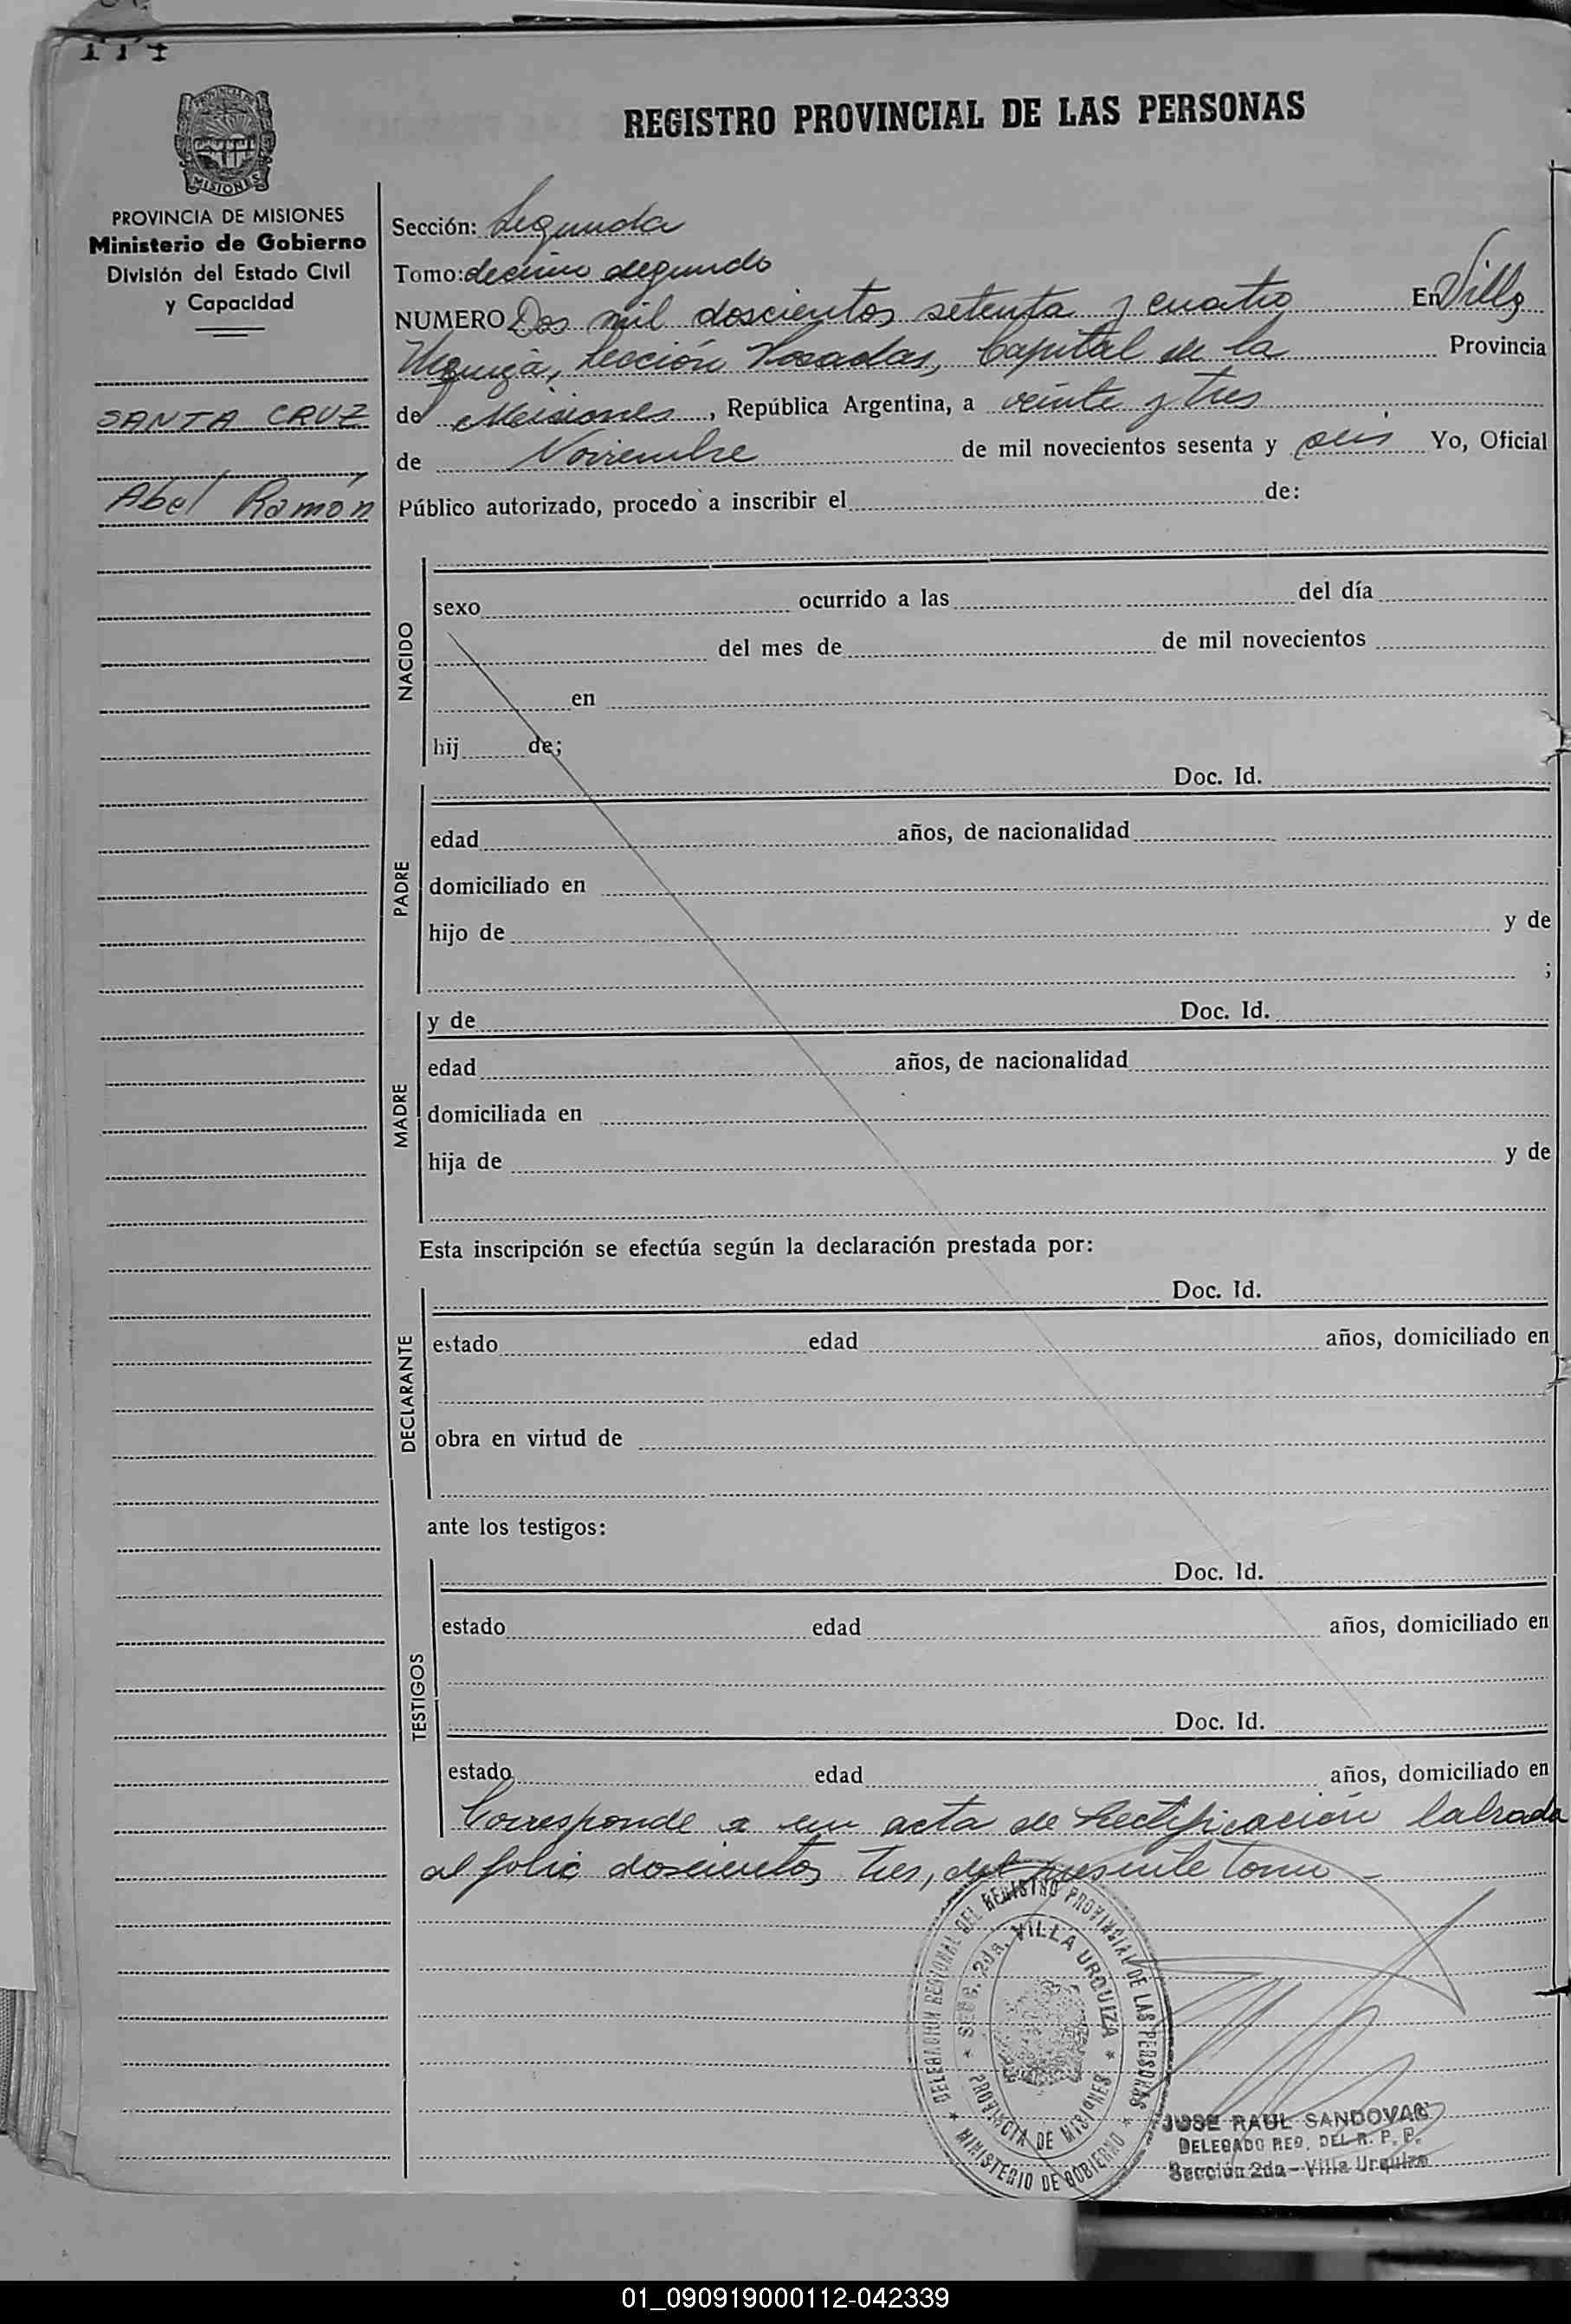 REGISTRO PROVINCIAL DE LAS PERSONAS
MISIONES
PROVINCIA DE MISIONES
Ministerio de Gobierno
División del Estado Civil
y Capacidad
SANTA CRUZ
Abel Ramón
Sección: Segunda
Tomo: decimo segundo
NUMERO Dos mil doscientos setenta y cuatro En Villa
Urquiza, Sección Posadas, Capital de la Provincia
de Misiones, República Argentina, a veinte y tres
de Noviembre de mil novecientos sesenta y seis Yo, Oficial
Público autorizado, procedo a inscribir el de:
NACIDO
sexo ocurrido a las del día
del mes de de mil novecientos
en
hij de;
PADRE
Doc. Id.
edad años, de nacionalidad
domiciliado en
hijo de y de
;
MADRE
y de Doc. Id.
edad años, de nacionalidad
domiciliada en
hija de y de
Esta inscripción se efectúa según la declaración prestada por:
DECLARANTE
Doc. Id.
estado edad años, domiciliado en
obra en virtud de
ante los testigos:
TESTIGOS
Doc. Id.
estado edad años, domiciliado en
Doc. Id.
estado edad años, domiciliado en
Corresponde a un acta de Rectificación labrada
al folio doscientos tres, del presente tomo -
DELEGACION REGIONAL DEL REGISTRO PROVINCIAL DE LAS PERSONAS
* SECC. 2da. VILLA URQUIZA *
PROVINCIA DE MISIONES
* MINISTERIO DE GOBIERNO *
JOSE RAUL SANDOVAL
DELEGADO REG. DEL R. P. P.
Sección 2da - Villa Urquiza
01_090919000112-042339